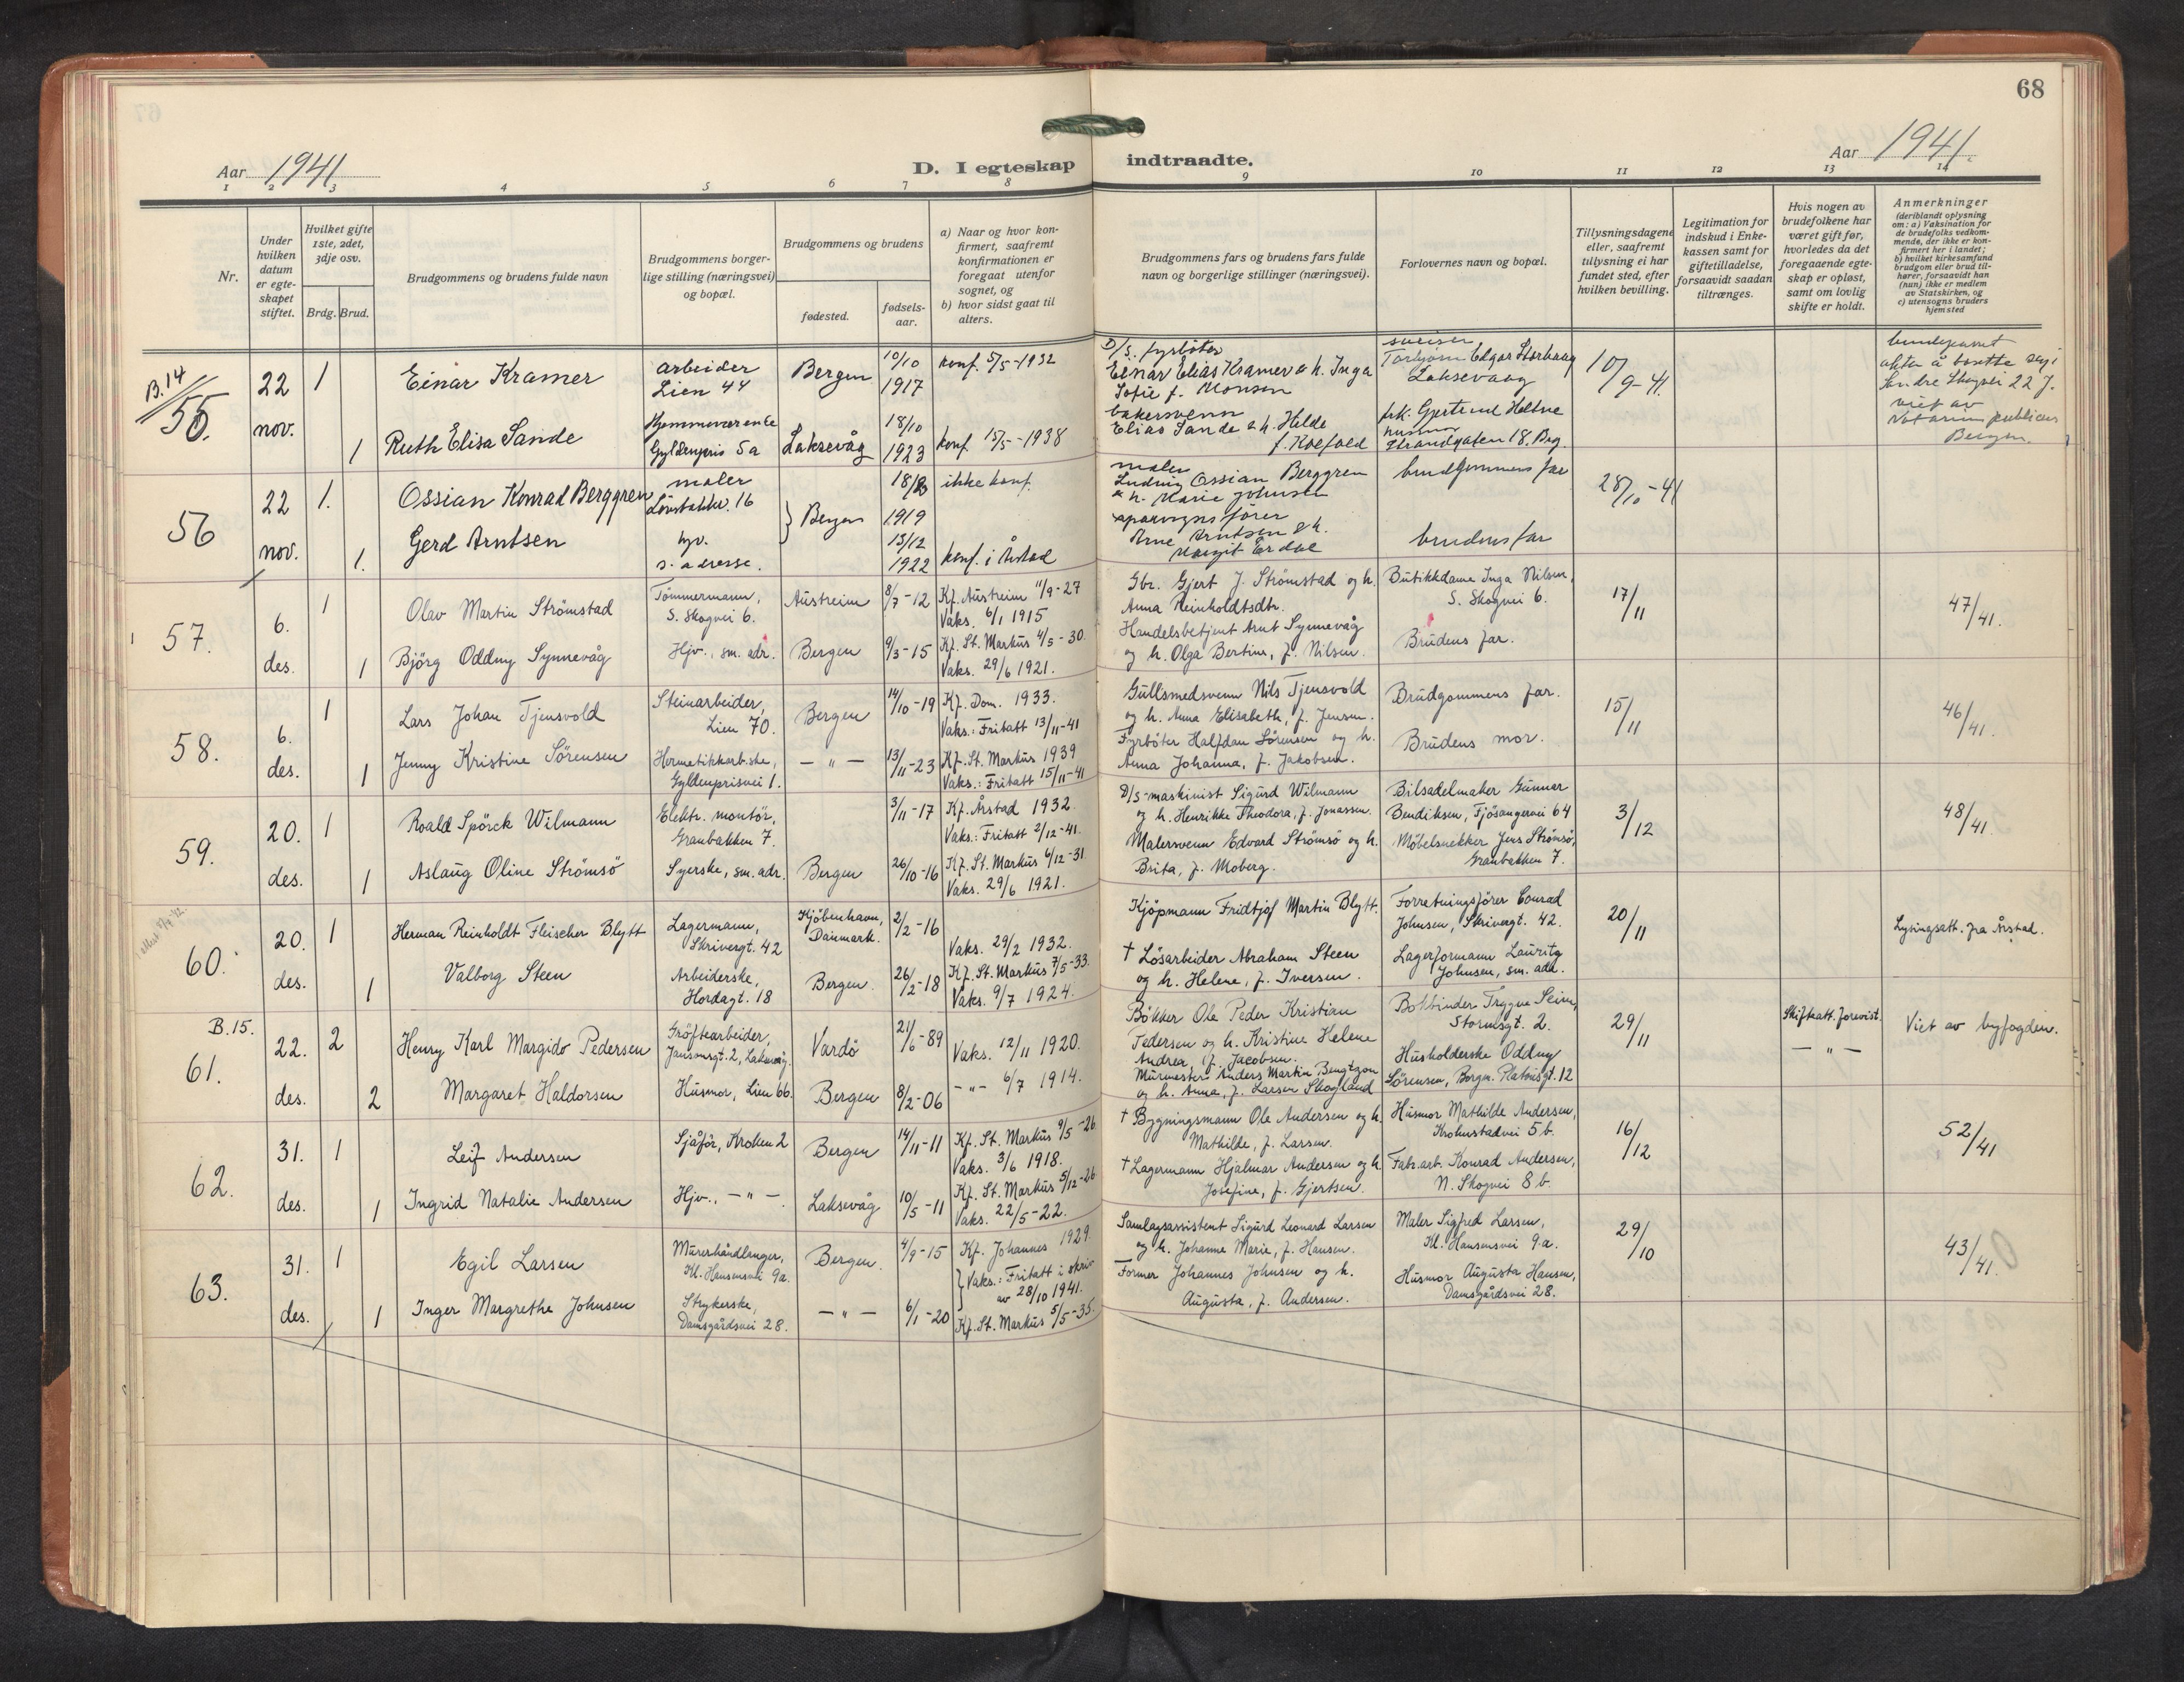 68
Aar 1941
D. I egteskap indtraadte.
Aar 1941.
1 2 3 4 5 6 7 8 9 10 11 12 13 14
Nr.
Under hvilken datum er egte-skapet stiftet.
Hvilket gifte 1ste, 2det, 3dje osv.
Brdg. Brud.
Brudgommens og brudens fulde navn
Brudgommens borger-lige stilling (næringsvei) og bopæl.
Brudgommens og brudens
fødested.
fødsels-aar.
a) Naar og hvor kon-firmert, saafremt konfirmationen er foregaat utenfor sognet, og
b) hvor sidst gaat til alters.
Brudgommens fars og brudens fars fulde navn og borgerlige stillinger (næringsvei).
Forlovernes navn og bopæl.
Tillysningsdagene eller, saafremt tillysning ei har fundet sted, efter hvilken bevilling.
Legitimation for indskud i Enke-kassen samt for giftetilladelse, forsaavidt saadan tiltrænges.
Hvis nogen av brudefolkene har været gift før, hvorledes da det foregaaende egte-skap er opløst, samt om lovlig skifte er holdt.
Anmerkninger (deriblandt oplysning om: a) Vaksination for de brudefolks vedkom-mende, der ikke er kon-firmert her i landet; b) hvilket kirkesamfund brudgom eller brud til-hører, forsaavidt han (hun) ikke er medlem av Statskirken, og c) utensogns bruders hjemsted
B.14
55.
22 nov.
1
Einar Kramer
arbeider
Lien 44
Bergen
10/10 1917
konf. 5/5-1932
D/S. fyrbøter
Einar Elias Kramer & h. Inga
Sofie f. Monsen
Edgar Storhaug
Laksevaag
10/9-41.
akter å bosette seg i
Søndre Skogvei 22 J.
viet av
Notarius publicus
Bergen.
1
Ruth Elisa Sande
Hjemmeværende
Gyldenpris 5a
Laksevåg
18/10 1923
konf. 15/5-1938
bakersvenn
Elias Sande & h. Hilde
f. Koefoed
frk. Gjertrud Holtne
Strandgaten 18. Brg.
56
22 nov.
1.
Ossian Konrad Berggren
maler
Løvstakkv. 16
Bergen
1919
ikke konf.
maler
Ludvig Ossian Berggren
& h. Marie Johnsen
brudgommens far
28/10-41
1.
Gerd Arntsen
hjv.
s. adresse.
13/12 1922
konf. i Årstad
sporvognsfører
Arne Arntsen & h.
Margit Erdal
brudens far
57.
6. des.
1
Olav Martin Strömstad
Tömmermann,
S. Skogvei 6.
Austreim
8/7-12
Kf. Austreim 11/9-27
Vaks. 6/1 1915
Gbr. Gjert J. Strömstad og h.
Anna Reinholdtsdtr.
Butikkdame Inga Nilsen,
S. Skogvei 6.
17/11
47/41.
1
Björg Oddny Synnevåg
Hjv., sm. adr.
Bergen
9/3-15
Kf. St. Markus 4/5-30.
Vaks. 29/6 1921.
Handelsbetjent Arnt Synnevåg
og h. Olga Bertine, f. Nilsen.
Brudens far.
58.
6. des.
1
Lars Johan Tjensvold
Steinarbeider,
Lien 70.
Bergen
14/10-19
Kf. Dom. 1933.
Vaks.: Fritatt 13/11-41
Gullsmedsvenn Nils Tjensvold
og h. Anna Elisabeth, f. Jensen.
Brudgommens far.
15/11
46/41.
1
Jenny Kristine Sörensen
Hermetikkarb.ske,
Gyldenprisvei 1.
— " —
13/11-23
Kf. St. Markus 1939
Vaks.: Fritatt 15/11-41
Fyrböter Halfdan Sörensen og h.
Anna Johanna, f. Jakobsen.
Brudens mor.
59.
20. des.
1
Roald Spörck Wilmann
Elektr. montör,
Granbakken 7.
3/11-17
Kf. Årstad 1932.
Vaks.: Fritatt 2/12-41.
D/S-maskinist Sigurd Wilmann
og h. Henrikke Theodora, f. Jonassen.
Bilsadelmaker Gunnar
Bendiksen, Fjösangervei 64
3/12
48/41.
1
Aslaug Oline Strömsö
Syerske, sm. adr.
Bergen
26/10-16
Kf. St. Markus 6/12-31
Vaks. 29/6 1921.
Malersvenn Edvard Strömsö og h.
Brita, f. Moberg.
Möbelsnekker Jens Strömsö,
Granbakken 7.
60.
20. des.
1
Herman Reinholdt Fleischer Blytt
Lagermann,
Skrivergt. 42
Kjöbenhavn,
Danmark.
2/2-16
Vaks. 29/2 1932.
Kjöpmann Fridtjof Martin Blytt.
Forretningsförer Conrad
Johnsen, Skrivergt. 42.
20/11
Lysingsatt. fra Årstad.
1
Valborg Steen
Arbeiderske,
Hordagt. 18
Bergen.
26/2-18
Kf. St. Markus 7/5-33.
Vaks. 9/7 1924.
† Lösarbeider Abraham Steen
og h. Helene, f. Iversen.
Lagerformann Lauritz
Johnsen, sm. adr.
B. 15.
61.
22. des.
2
Henry Karl Margido Pedersen
Gröftearbeider,
Jansonsgt. 2, Laksevåg.
Vardö
21/6-89
Vaks. 12/11 1920.
Bökker Ole Peder Kristian
Pedersen og h. Kristine Helene
Andrea, f. Jacobsen.
Bokbinder Trygve Seim,
Stormsgt. 2.
29/11
Skifteatt. forevist.
Viet av byfogden.
2
Margaret Haldorsen
Husmor, Lien 66.
Bergen
8/2-06
— " — 6/7 1914.
Murmester Anders Martin Bengtzon
og h. Anna, f. Larsen Skogland
Husholderske Oddny
Sörensen, Bergen. Platousgt. 12
— " —
62.
31. des.
1
Leif Andersen
Sjåför, Kroken 2
Bergen
14/11-11
Kf. St. Markus 9/5-26
Vaks. 3/6 1918.
† Bygningsmann Ole Andersen og h.
Mathilde, f. Larsen.
Husmor Mathilde Andersen,
Krohnstadvei 5 b.
16/12
52/41
1
Ingrid Natalie Andersen
Hjv., — " —
Laksevåg
10/5-11
Kf. St. Markus 5/12-26
Vaks. 22/5-22.
† Lagermann Hjalmar Andersen og h.
Josefine, f. Gjertsen.
Fabr.arb. Konrad Andersen,
N. Skogvei 8 b.
63.
31. des.
1
Egil Larsen
Murerhåndlanger,
Kl. Hansensvei 9a.
Bergen.
4/9-15
Kf. Johannes 1929.
Vaks.: Fritatt i skriv
av 28/10 1941.
Samlagsassistent Sigurd Leonard Larsen
og h. Johanne Marie, f. Hansen.
Maler Sigfred Larsen,
Kl. Hansensvei 9a.
29/10
43/41.
1
Inger Margrethe Johnsen
Strykerske,
Damsgårdsvei 28.
— " —
6/1-20
Kf. St. Markus 5/5-35.
Former Johannes Johnsen og h.
Augusta, f. Andersen.
Husmor Augusta Hansen,
Damsgårdsvei 28.